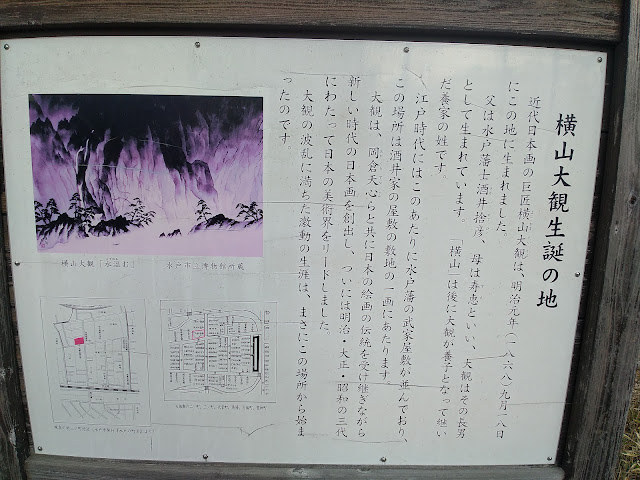 横山大観生誕の地
近代日本画の巨匠横山大観は、明治元年(一八六八)九月一八日
にこの地に生まれました。
父は水戸藩士酒井捨彦、母は寿恵といい、大観はその長男
として生まれています。「横山」は後に大観が養子となって継い
だ養家の姓です。
江戸時代にはこのあたりに水戸藩の武家屋敷が並んでおり、
この場所は酒井家の屋敷の敷地の一画にあたります。
大観は、岡倉天心らと共に日本の絵画の伝統を受け継ぎながら
新しい時代の日本画を創出し、ついには明治・大正・昭和の三代
にわたって日本の美術界をリードしました。
大観の波乱に満ちた激動の生涯は、まさにこの場所から始ま
ったのです。
横山大観
水戸市立博物館所蔵